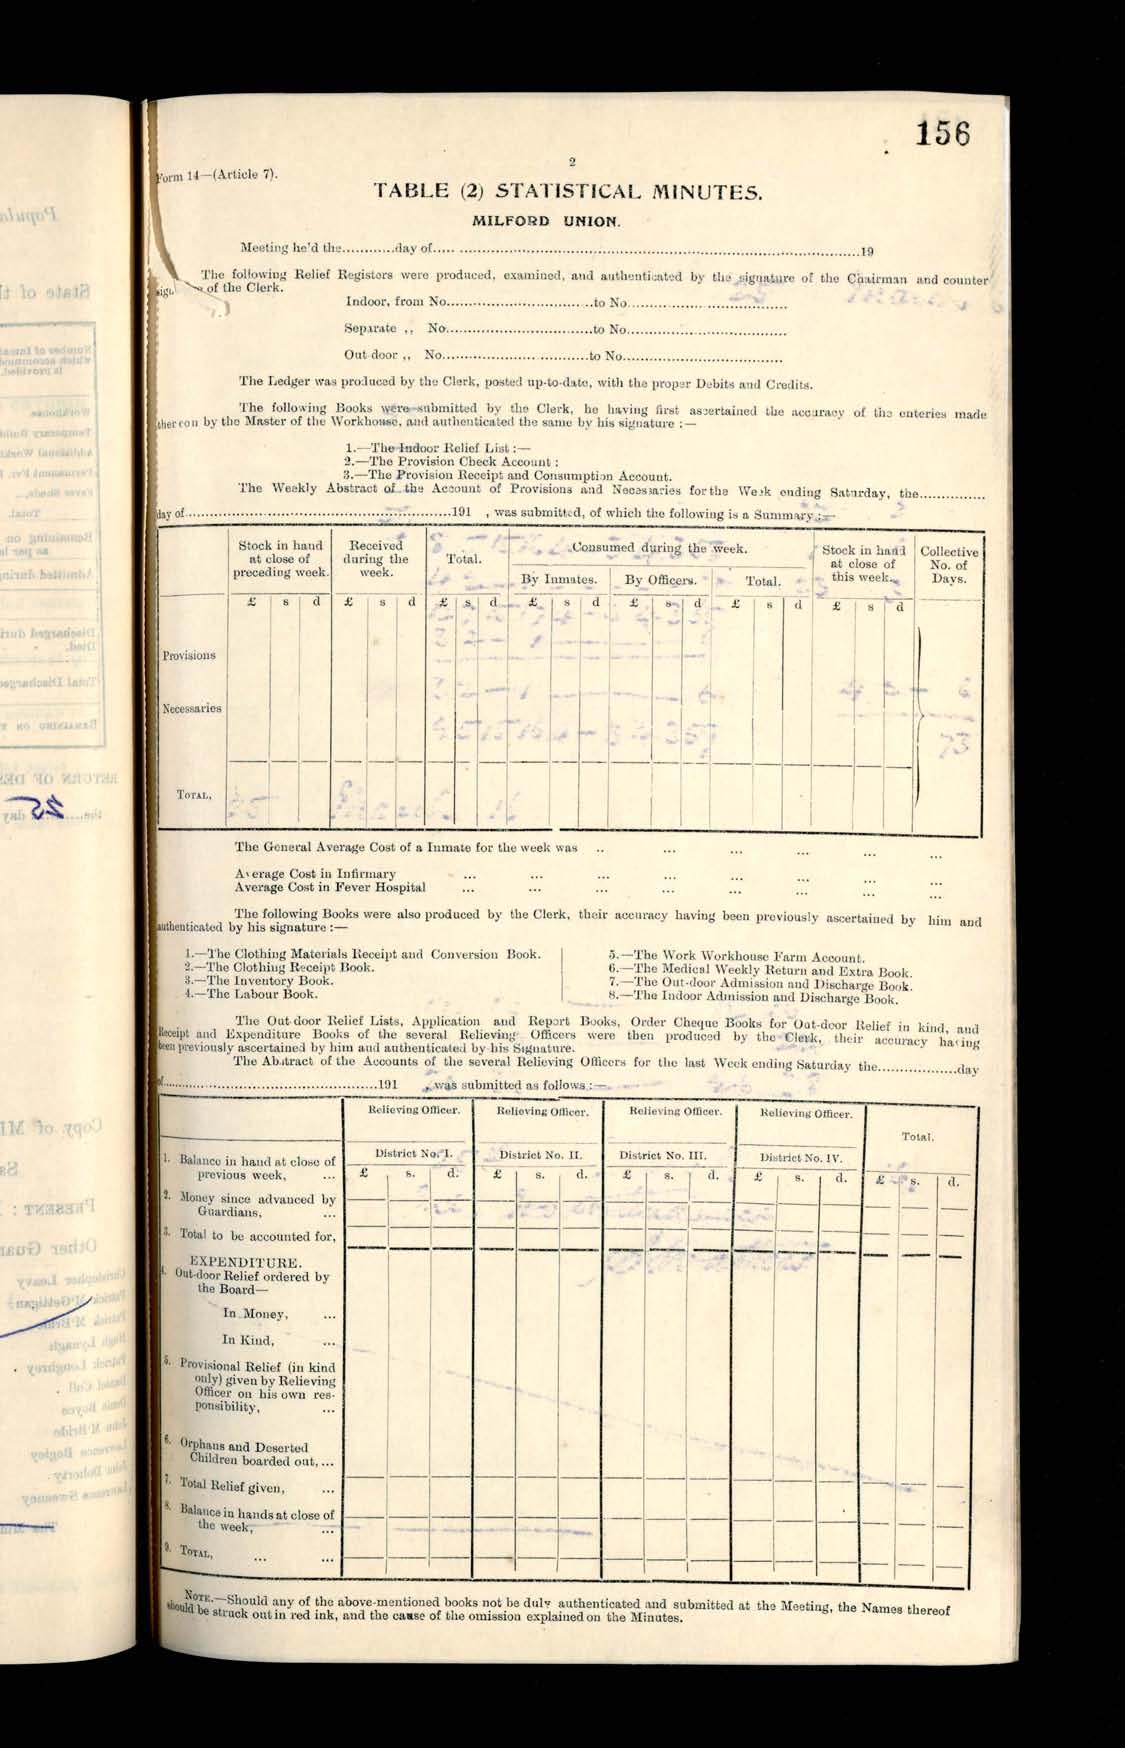 156
2
Form 14—(Article 7).
TABLE (2) STATISTICAL MINUTES.
MILFORD UNION.
Meeting he'd the............day of..............................19
The following Relief Registers were produced, examined, and authenticated by the signature of the Chairman and counter
of the Clerk.
Indoor, from No..............................to No..............................
Separate ,, No..............................to No..............................
Out-door ,, No..............................to No..............................
The Ledger was produced by the Clerk, posted up-to-date, with the proper Debits and Credits.
The following Books were submitted by the Clerk, he having first ascertained the accuracy of the enteries made
thereon by the Master of the Workhouse, and authenticated the same by his signature :—
1.—The Indoor Relief List :—
2.—The Provision Check Account :
3.—The Provision Receipt and Consumption Account.
The Weekly Abstract of the Account of Provisions and Necessaries for the Week ending Saturday, the...............
day of..............................191 , was submitted, of which the following is a Summary :—
Stock in hand at close of preceding week. Received during the week. Total. Consumed during the week. Stock in hand at close of this week. Collective No. of Days.
By Inmates. By Officers. Total.
£ s d £ s d £ s d £ s d £ s d £ s d £ s d
Provisions
Necessaries
TOTAL,
The General Average Cost of a Inmate for the week was .. ... ... ... ... ...
Average Cost in Infirmary ... ... ... ... ... ... ... ...
Average Cost in Fever Hospital ... ... ... ... ... ... ... ...
The following Books were also produced by the Clerk, their accuracy having been previously ascertained by him and
authenticated by his signature :—
1.—The Clothing Materials Receipt and Conversion Book.
2.—The Clothing Receipt Book.
3.—The Inventory Book.
4.—The Labour Book.
5.—The Work Workhouse Farm Account.
6.—The Medical Weekly Return and Extra Book.
7.—The Out-door Admission and Discharge Book.
8.—The Indoor Admission and Discharge Book.
The Out-door Relief Lists, Application and Report Books, Order Cheque Books for Out-door Relief in kind, and
Receipt and Expenditure Books of the several Relieving Officers were then produced by the Clerk, their accuracy having
been previously ascertained by him and authenticated by his Signature.
The Abstract of the Accounts of the several Relieving Officers for the last Week ending Saturday the..................day
of..............................191 , was submitted as follows :—
Relieving Officer. Relieving Officer. Relieving Officer. Relieving Officer. Total.
District No. I. District No. II. District No. III. District No. IV.
£ s. d. £ s. d. £ s. d. £ s. d. £ s. d.
1. Balance in hand at close of
previous week, ...
2. Money since advanced by
Guardians, ...
3. Total to be accounted for,
EXPENDITURE.
4. Out-door Relief ordered by
the Board—
In Money, ...
In Kind, ...
5. Provisional Relief (in kind
only) given by Relieving
Officer on his own res-
ponsibility, ...
6. Orphans and Deserted
Children boarded out, ...
7. Total Relief given, ...
8. Balance in hands at close of
the week, ...
9. TOTAL, ... ...
NOTE.—Should any of the above-mentioned books not be duly authenticated and submitted at the Meeting, the Names thereof
should be struck out in red ink, and the cause of the omission explained on the Minutes.